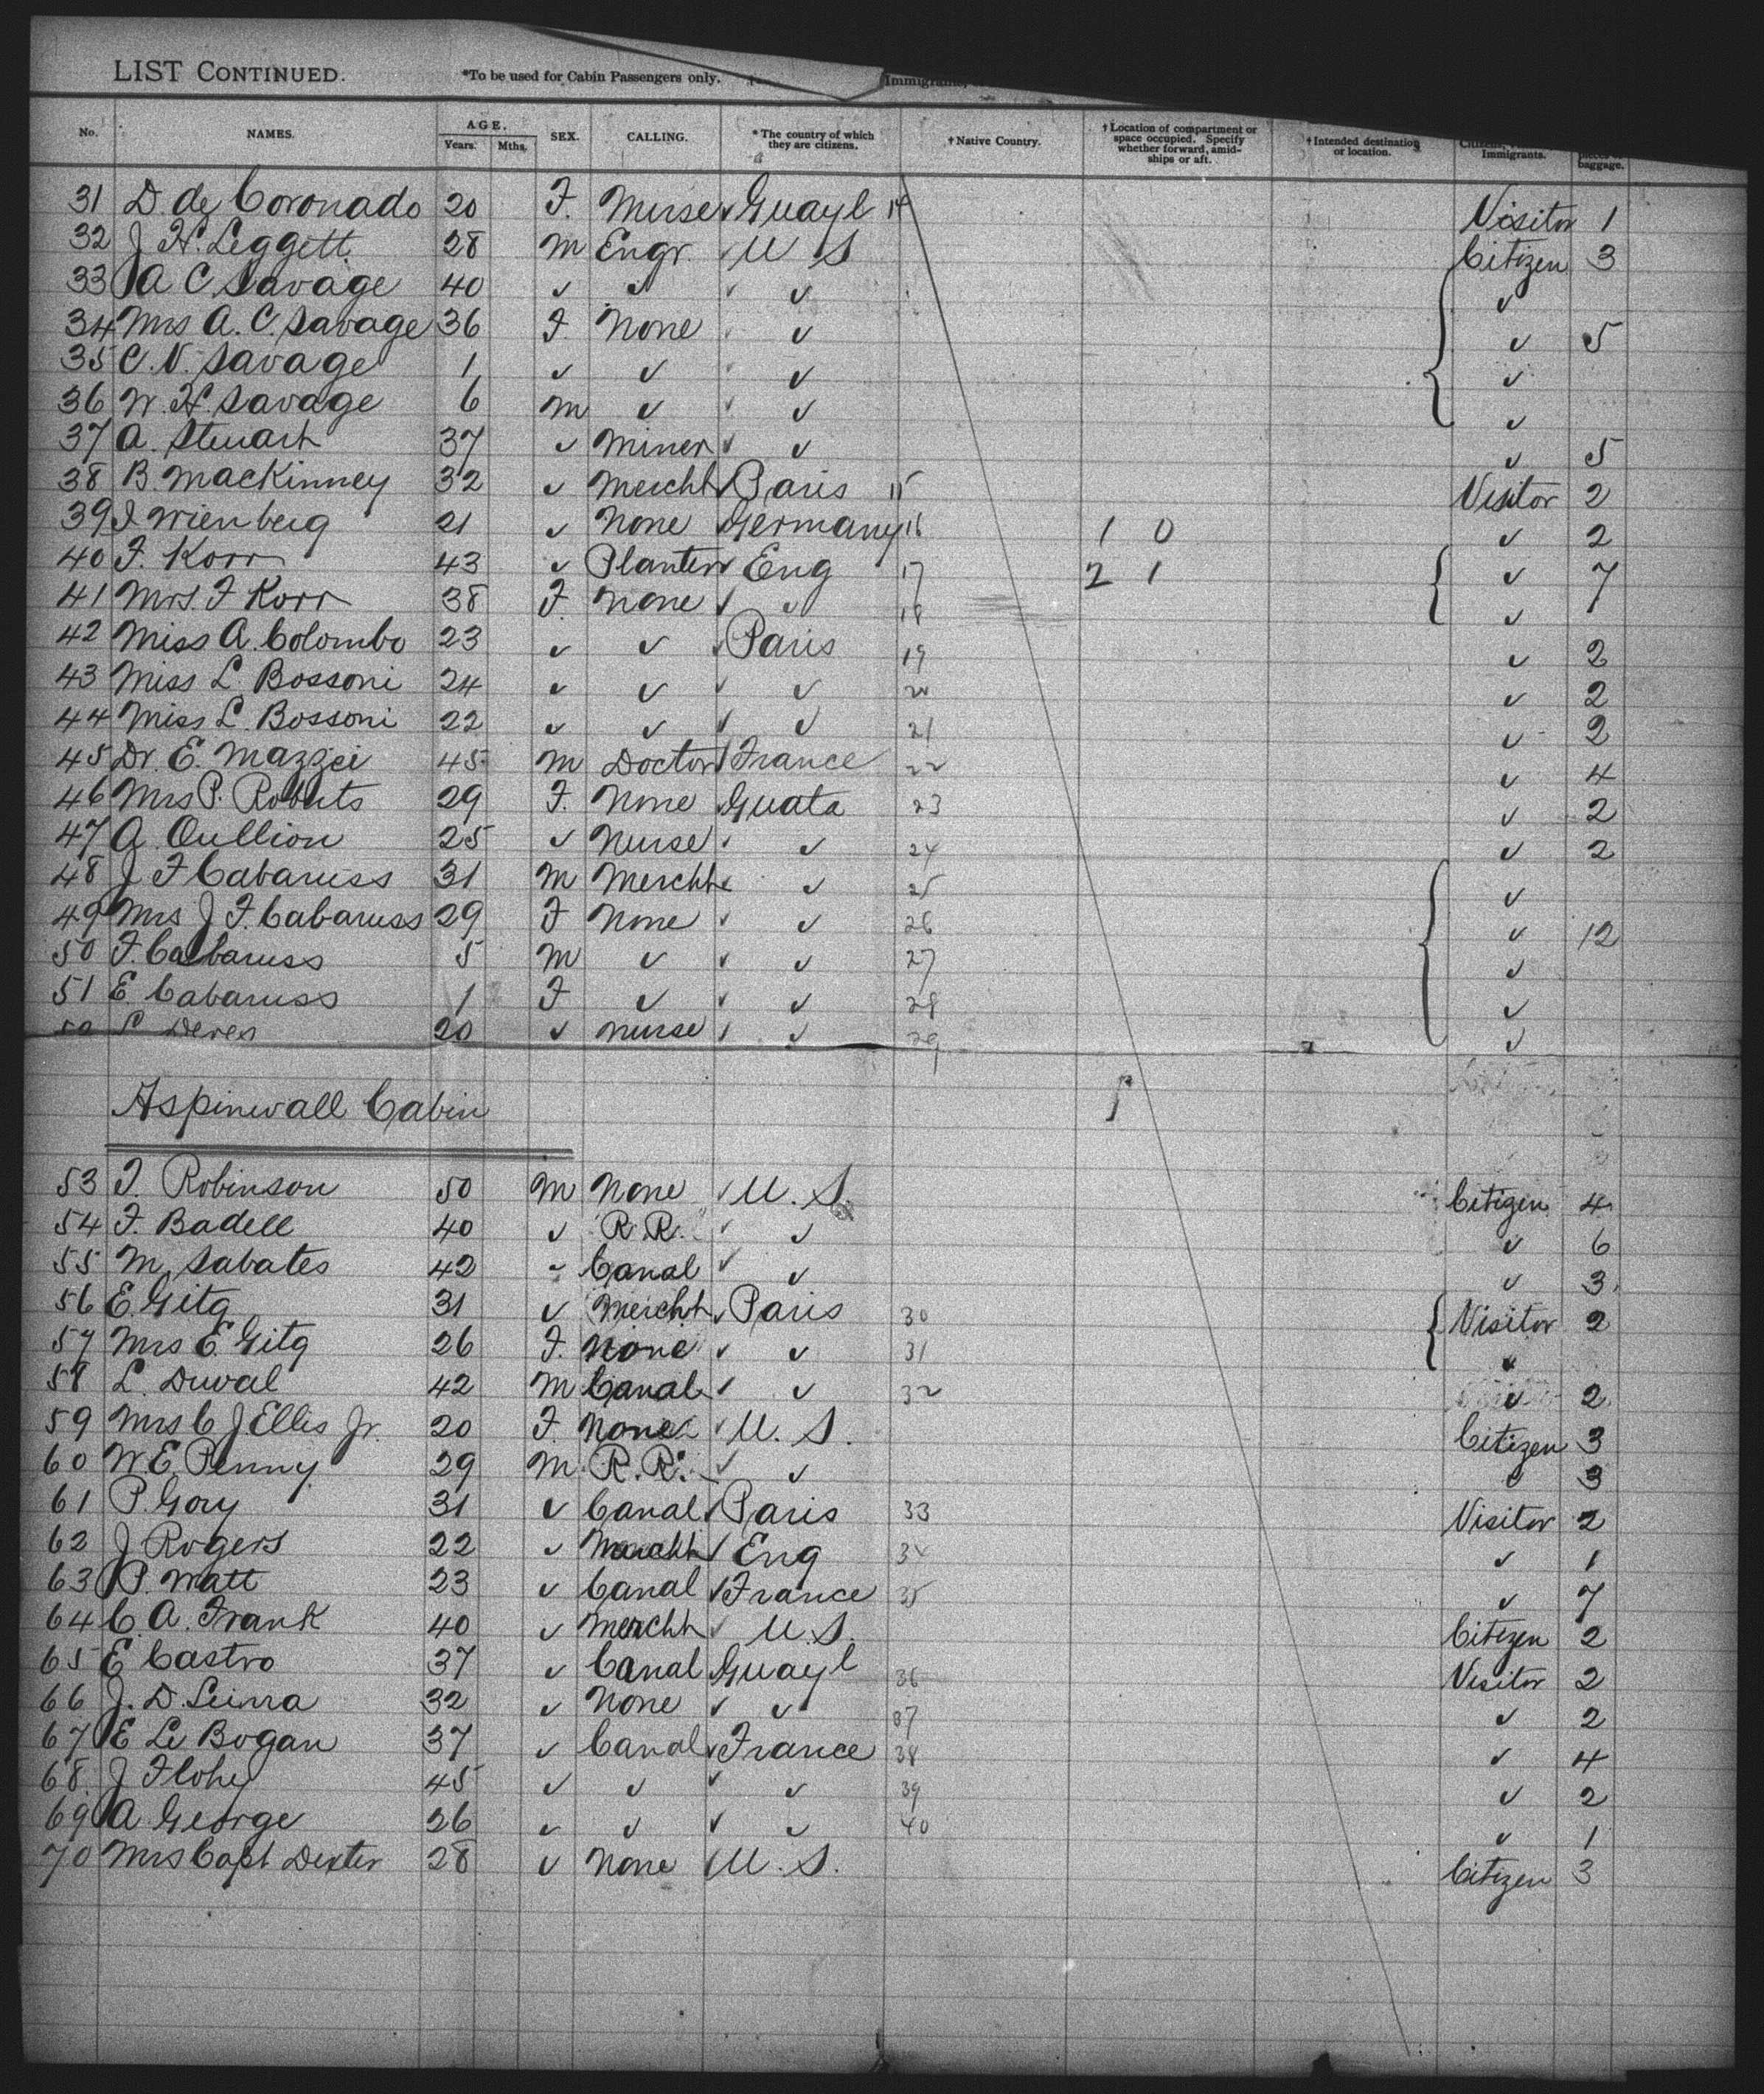 LIST CONTINUED. *To be used for Cabin Passengers only. Immigrants,
No. NAMES. AGE. Years. Mths. SEX. CALLING. *The country of which they are citizens. †Native Country. †Location of compartment or space occupied. Specify whether forward, amidships or aft. †Intended destination or location. Immigrants. baggage.
31 D. de Coronado 20 F. Nurse ✓ Guayl 14 Visitor 1
32 J H. Leggett 28 M Engr. ✓ U S Citizen 3
33 A C Savage 40 ✓ ✓ ✓ ✓ ✓
34 Mrs A. C. Savage 36 F. None ✓ ✓ ✓ 5
35 C. N. Savage 1 ✓ ✓ ✓ ✓ ✓
36 W. H. Savage 6 M ✓ ✓ ✓ ✓
37 A. Steuart 37 ✓ Miner ✓ ✓ ✓ 5
38 B. MacKinney 32 ✓ Mercht ✓ Paris 15 Visitor 2
39 J Wienberg 21 ✓ None ✓ Germany 16 1 0 ✓ 2
40 F. Korr 43 ✓ Planter ✓ Eng 17 2 1 ✓ 7
41 Mrs. F Korr 38 F. None ✓ ✓ 18 ✓
42 Miss A. Colombo 23 ✓ ✓ ✓ Paris 19 ✓ 2
43 Miss L. Bossoni 24 ✓ ✓ ✓ ✓ 20 ✓ 2
44 Miss L. Bossoni 22 ✓ ✓ ✓ ✓ 21 ✓ 2
45 Dr. E. Mazzei 45 M Doctor ✓ France 22 ✓ 4
46 Mrs P. Roberts 29 F. None ✓ Guata 23 ✓ 2
47 A. Oullion 25 ✓ Nurse ✓ ✓ 24 ✓ 2
48 J F Cabaruss 31 M Mercht ✓ ✓ 25 ✓
49 Mrs J F. Cabaruss 29 F None ✓ ✓ 26 ✓ 12
50 F. Cabaruss 5 M ✓ ✓ ✓ 27 ✓
51 E. Cabaruss 1 F ✓ ✓ ✓ 28 ✓
52 Deves 20 ✓ Nurse ✓ ✓ 29 ✓
Aspinwall Cabin
53 F. Robinson 50 M None ✓ U. S. Citizen 4
54 F. Badell 40 ✓ R. R. ✓ ✓ ✓ 6
55 M. Sabates 42 ✓ Canal ✓ ✓ ✓ 3
56 E. Gitg 31 ✓ Mercht ✓ Paris 30 Visitor 2
57 Mrs E. Gitg 26 F. None ✓ ✓ 31 ✓
58 L. Duval 42 M Canal ✓ ✓ 32 ✓ 2
59 Mrs C J Ellis Jr. 20 F. None ✓ U. S. Citizen 3
60 W. E. Penny 29 M R. R. ✓ ✓ ✓ 3
61 P. Gory 31 ✓ Canal ✓ Paris 33 Visitor 2
62 J Rogers 22 ✓ Mercht ✓ Eng 34 ✓ 1
63 P. Watt 23 ✓ Canal ✓ France 35 ✓ 7
64 C. A. Frank 40 ✓ Mercht ✓ U. S. Citizen 2
65 E Castro 37 ✓ Canal ✓ Guayl 36 Visitor 2
66 J. D. 32 ✓ None ✓ ✓ 37 ✓ 2
67 E Le Bogan 37 ✓ Canal ✓ France 38 ✓ 4
68 J Flohy 45 ✓ ✓ ✓ ✓ 39 ✓ 2
69 A George 26 ✓ ✓ ✓ ✓ 40 ✓ 1
70 Mrs Capt Dexter 28 ✓ None ✓ U. S. Citizen 3